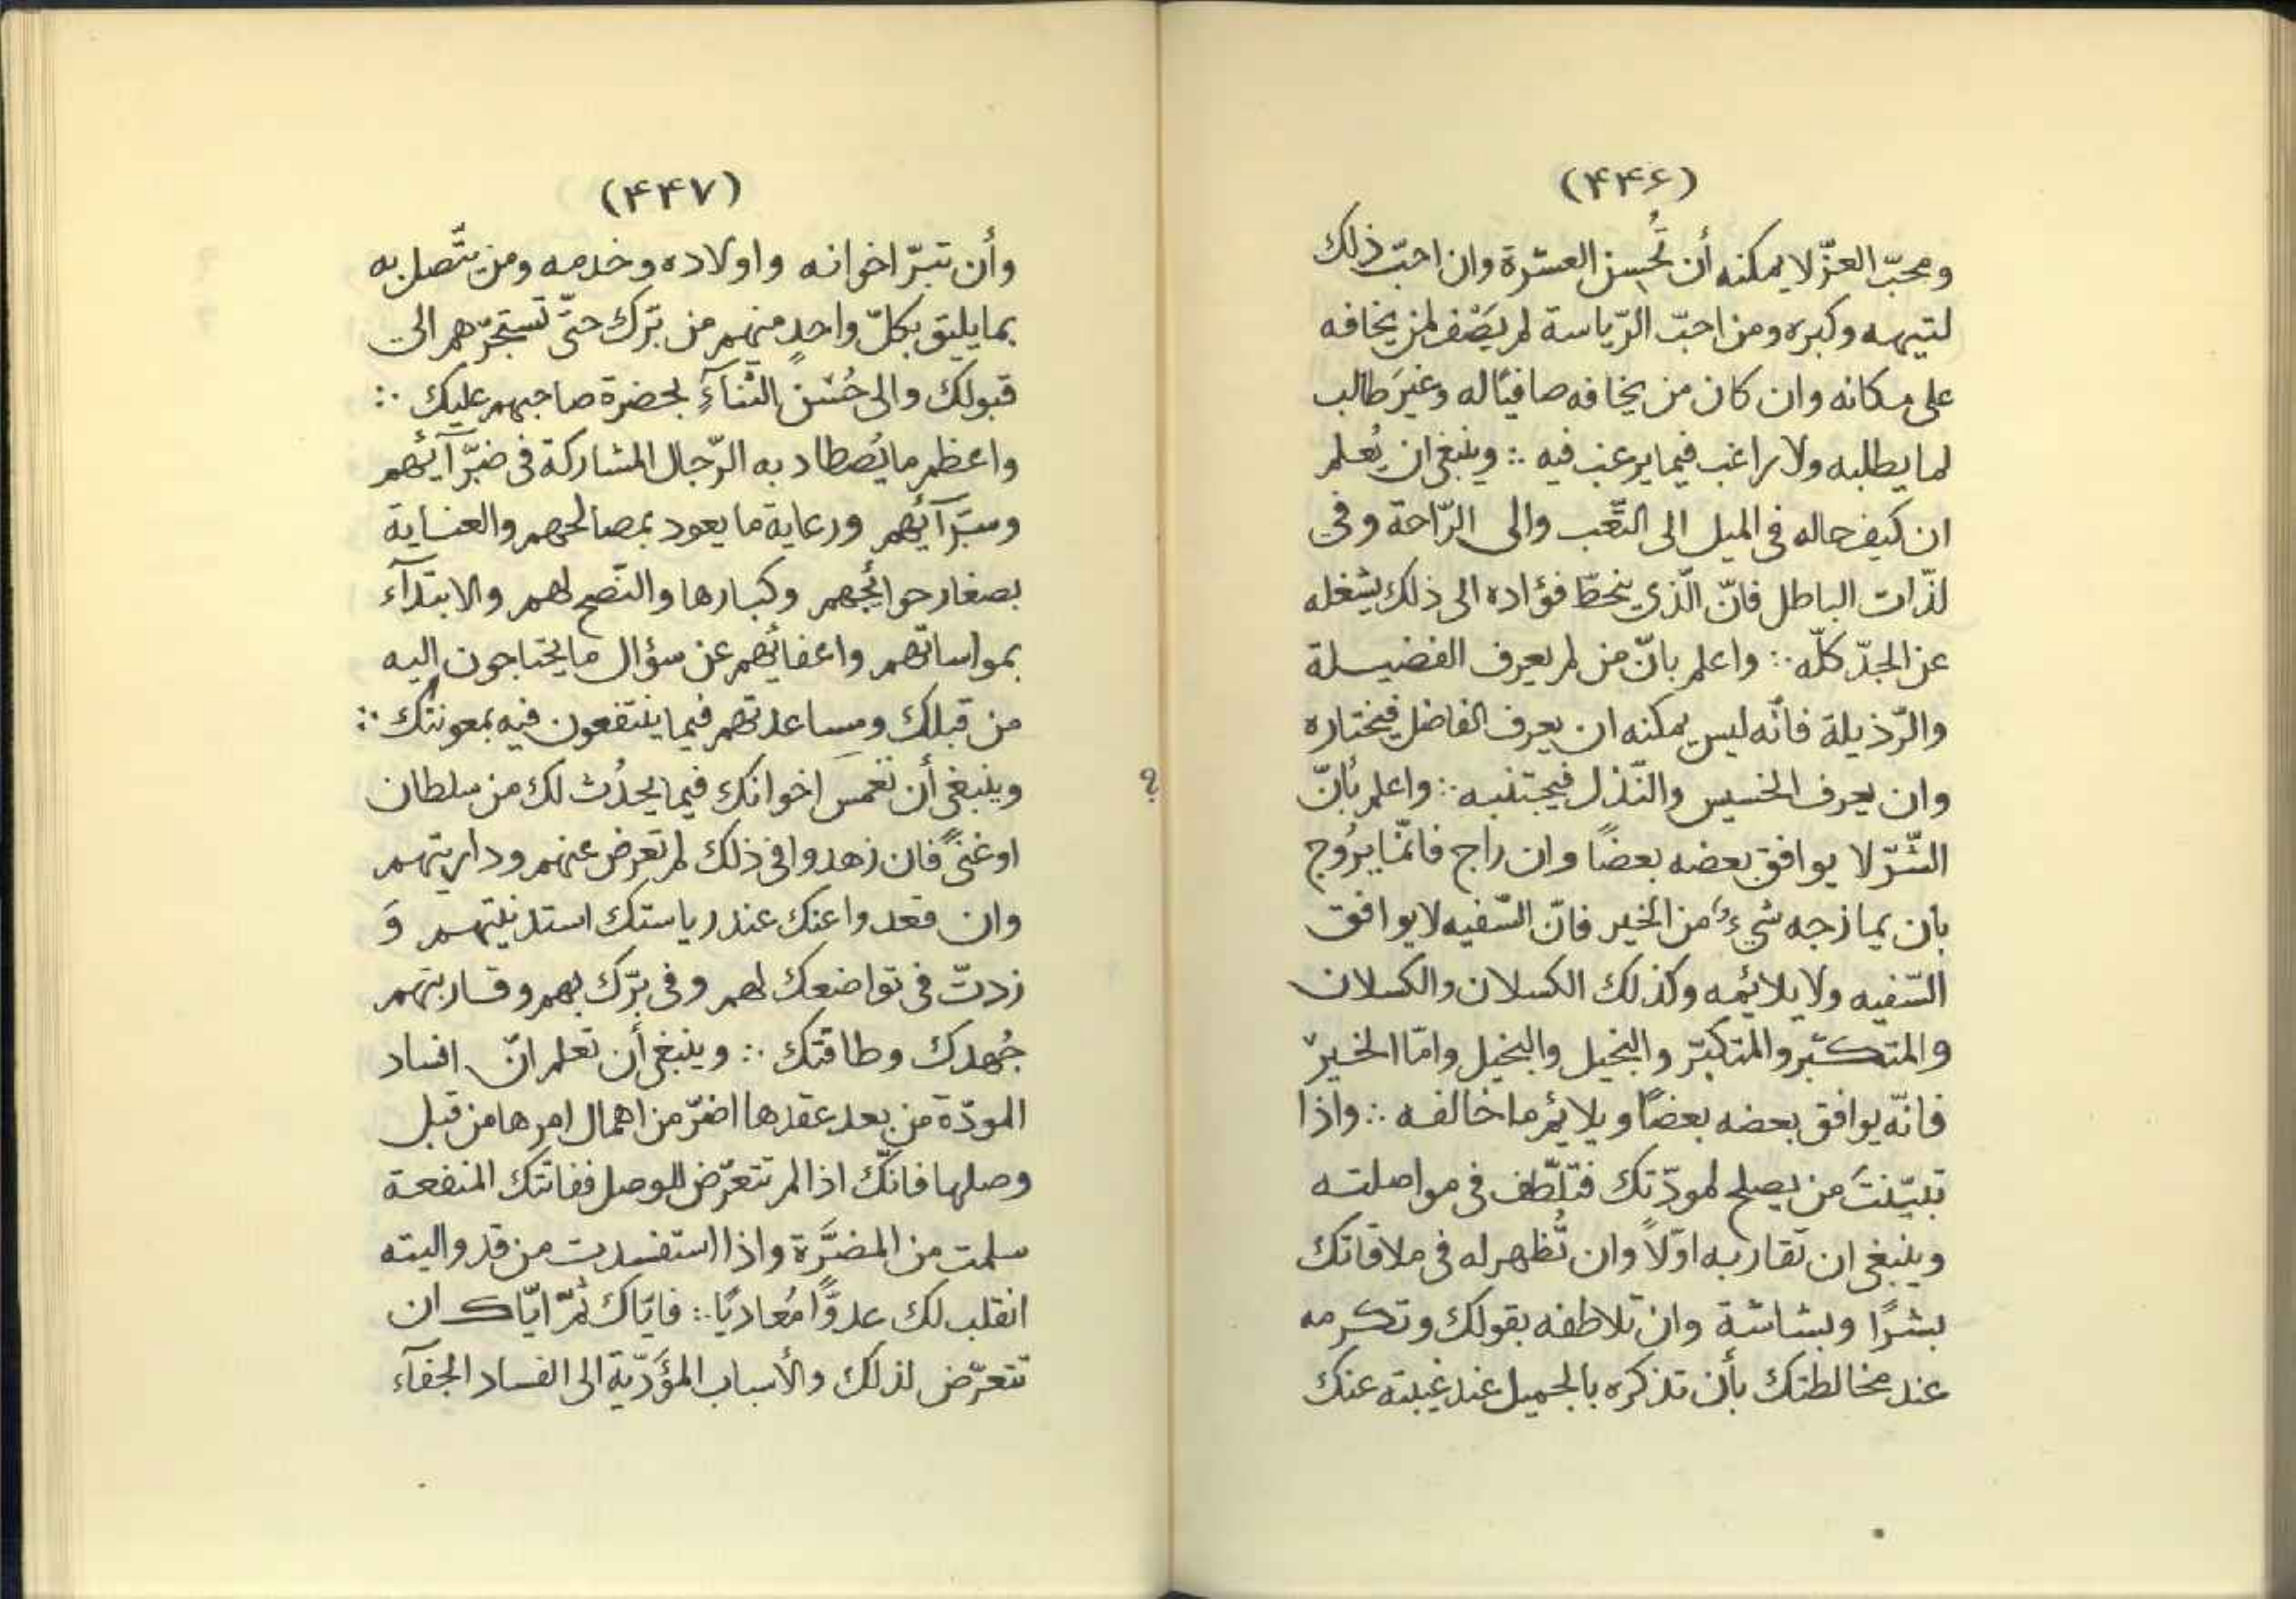 (۴۴۶)
ومحبّ العزّ لا يمكنه أن تُحسِن العشرة وان احبّ ذلك
لتيهه وكبره ومن احبّ الرّياسة لم يَصْف لمن يخافه
على مكانه وان كان من يخافه صافيًا له وغيرَ طالب
لما يطلبه ولا راغب فيما يرغب فيه ∴ وينبغى ان يُعلم
ان كيف حاله فى الميل الى التّعب والى الرّاحة وفى
لذّات الباطل فانّ الّذى ينحطّ فؤاده الى ذلك يشغله
عن الجدّ كلّه ∴ واعلم بانّ من لم يعرف الفضيلة
والرّذيلة فانّه ليس يمكنه ان يعرف الفاضل فيختاره
وان يعرف الخسيس والنّذل فيجتنبه ∴ واعلم بأنّ
الشّرّ لا يوافق بعضه بعضًا وان راج فانّما يرُوج
بان يمازجه شىءٌ من الخير فانّ السّفيه لا يوافق
السّفيه ولا يلائمه وكذلك الكسلان والكسلان
والمتكبّر والمتكبّر والبخيل والبخيل وامّا الخير
فانّه يوافق بعضه بعضًا ويلائم ما خالفه ∴ واذا
تبيّنتَ من يصلح لمودّتك فتلّطف فى مواصلته
وينبغى ان تقاربه اوّلاً وان تُظهر له فى ملاقاتك
بشرًا وبشاشة وان تلاطفه بقولك وتكرمه
عند مخالطتك بأن تذكره بالجميل عند غيبته عنك
(۴۴۷)
وأن تبرّ اخوانه واولاده وخدمه ومن يتّصل به
بما يليق بكلّ واحدٍ منهم من برّك حتّى تستجرّهم الى
قبولك والى حُسْن الثّنآءِ بحضرة صاحبهم عليك ∴
واعظم ما يُصطاد به الرّجال المشاركة فى ضرّآئهم
وسرّآئهم ورعاية ما يعود بمصالحهم والعناية
بصغار حوائجهم وكبارها والنّصح لهم والابتدآء
بمواساتهم واعفائهم عن سؤال ما يحتاجون اليه
من قبلك ومساعدتهم فيما ينتفعون فيه بمعونتك ∴
وينبغى أن تغمسَ اخوانك فيما يحدُث لك من سلطان
او غنىً فان زهدوا فى ذلك لم تعرض عنهم وداريتهم
وان قعدوا عنك عند رياستك استدنيتهم وَ
زدتّ فى تواضعك لهم وفى برّك بهم وقاربتهم
جُهدك وطاقتك ∴ وينبغى أن تعلم انّ افساد
المودّة من بعد عقدها اضرّ من اهمال امرها من قبل
وصلها فانّك اذا لم تتعرّض للوصل ففاتتك المنفعة
سلمت من المضرَّة واذا استفسدت من قد واليته
انقلب لك عدوًّا مُعاديًا ∴ فايّاك ثمّ ايّاك ان
تتعرّض لذلك والأسباب المؤَدّية الى الفساد الجفآء
؟